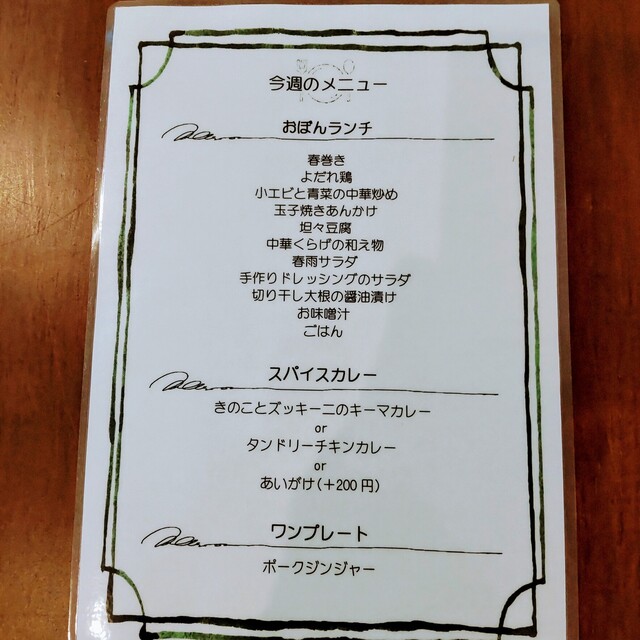 今週のメニュー
おぼんランチ
春巻き
よだれ鶏
小エビと青菜の中華炒め
玉子焼きあんかけ
坦々豆腐
中華くらげの和え物
春雨サラダ
手作りドレッシングのサラダ
切り干し大根の醤油漬け
お味噌汁
ごはん
スパイスカレー
きのことズッキーニのキーマカレー
or
タンドリーチキンカレー
or
あいがけ(＋200円)
ワンプレート
ポークジンジャー